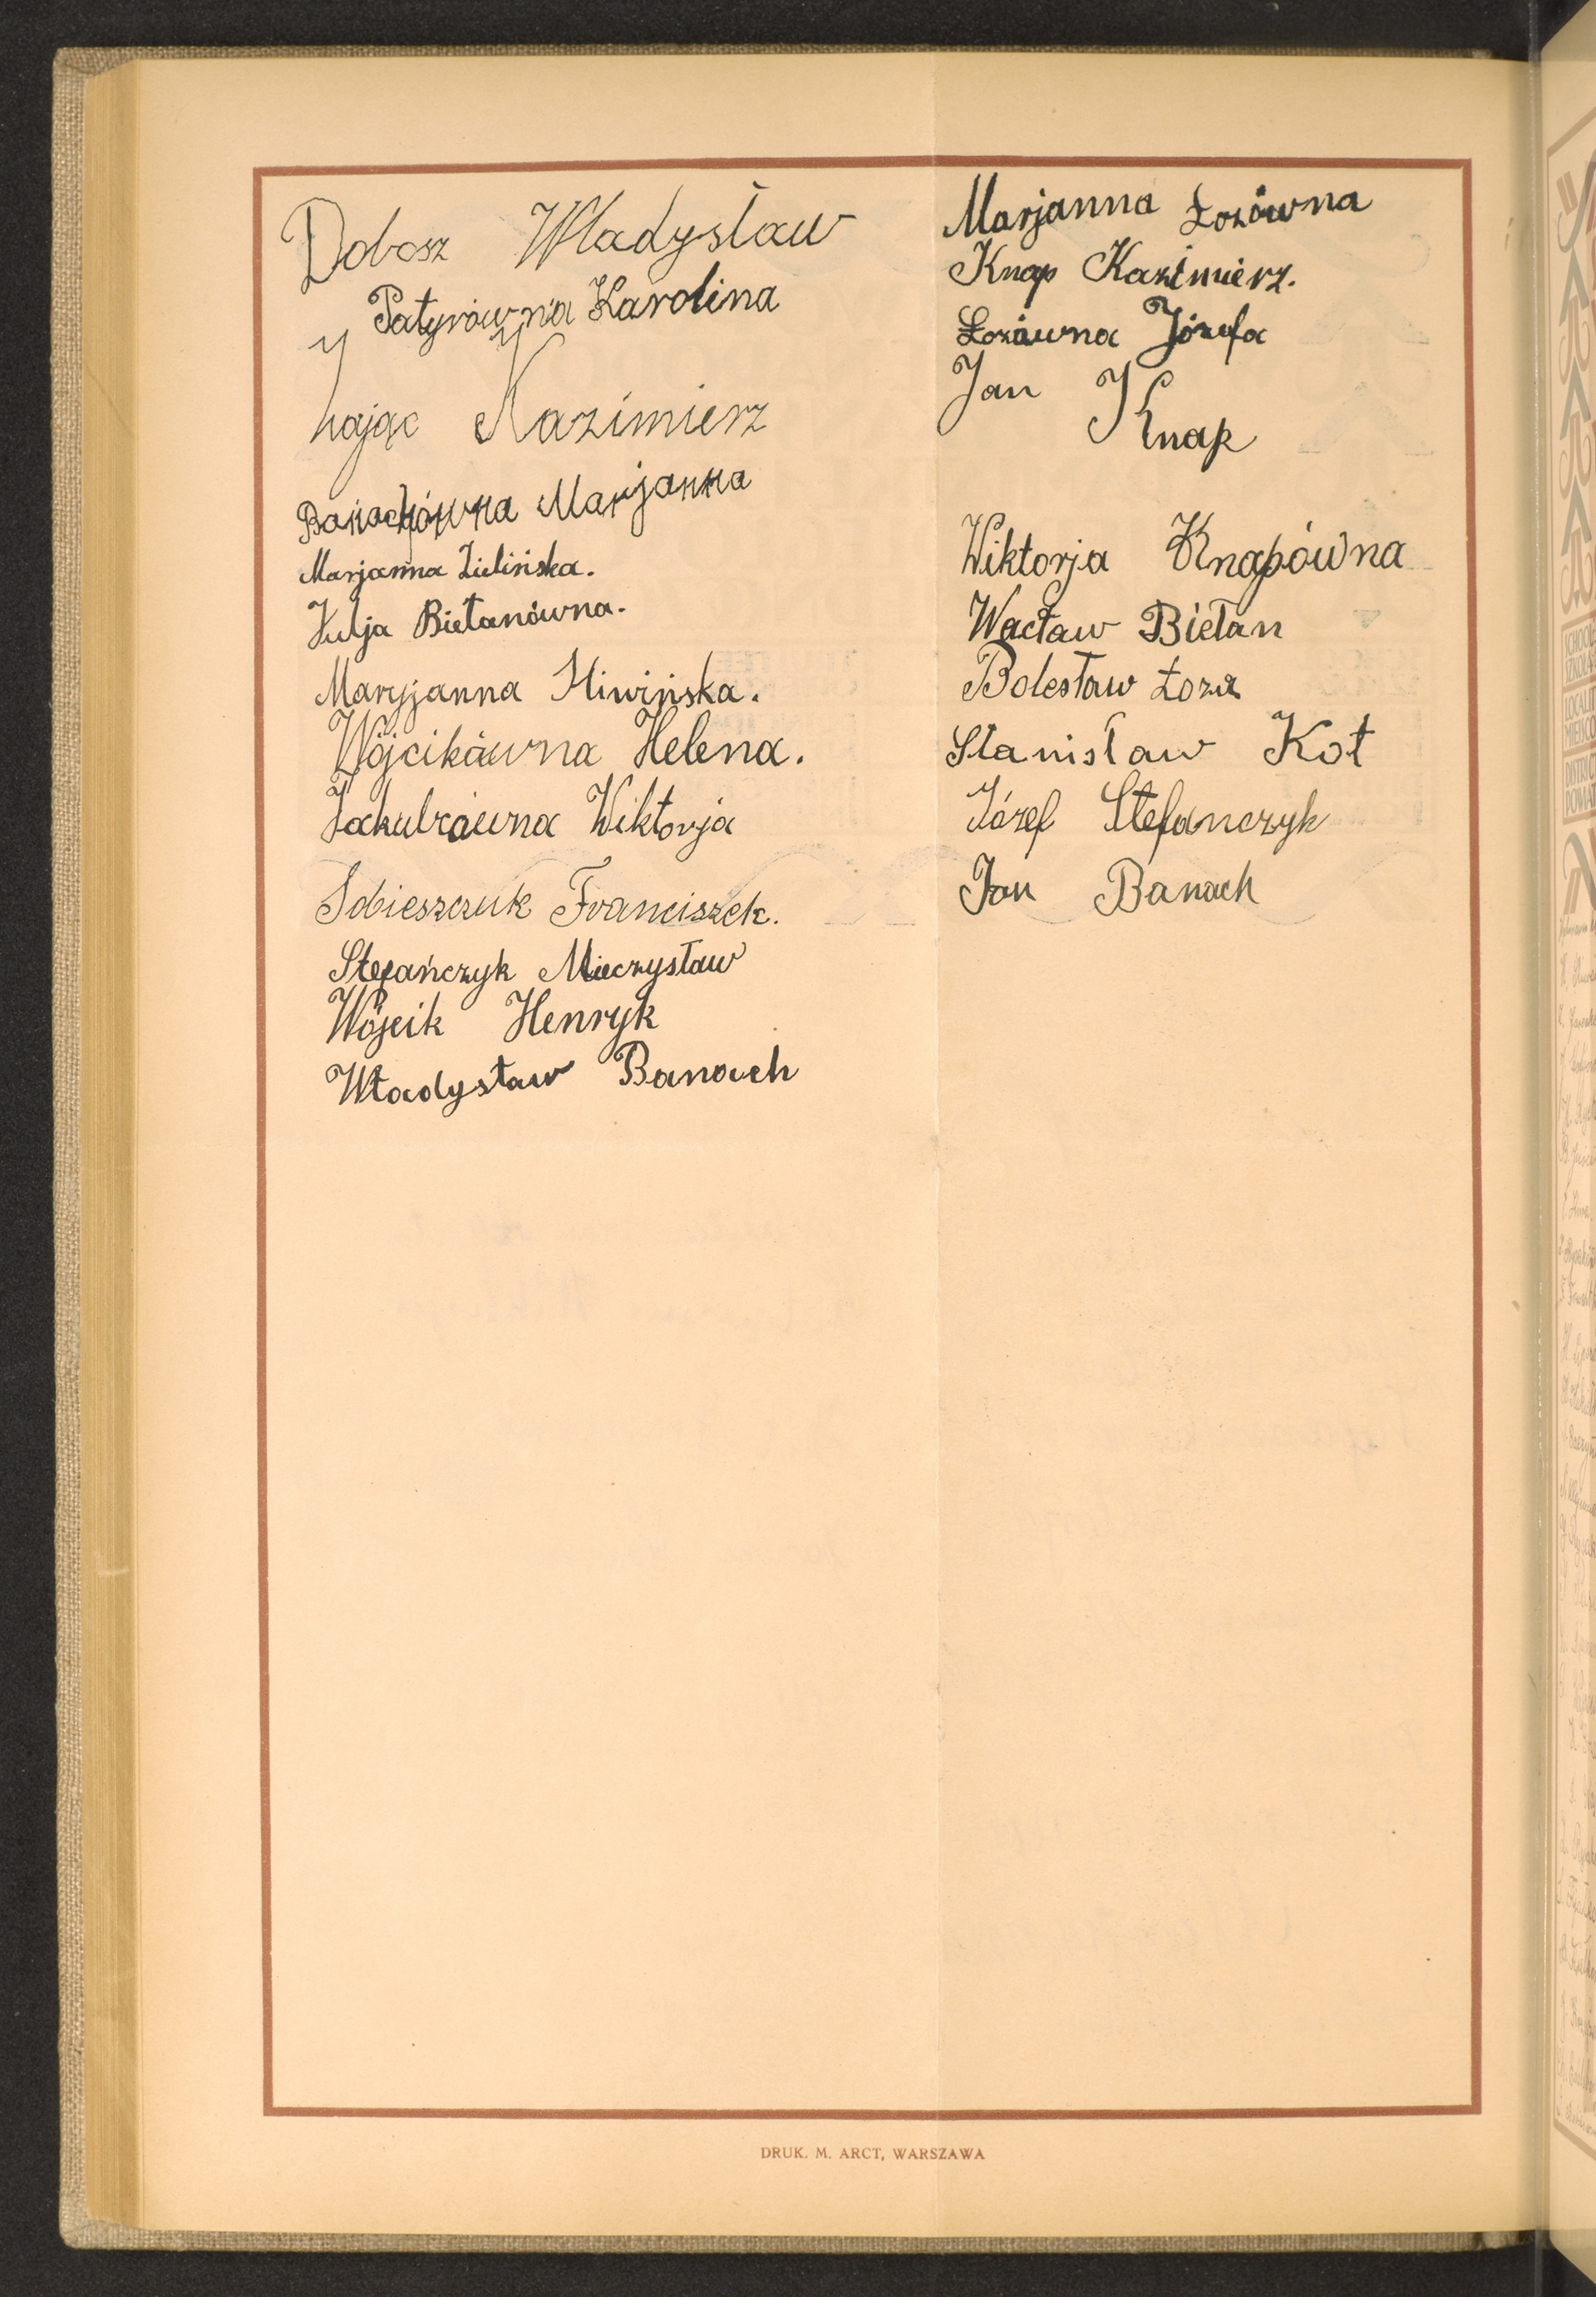 Dobosz Władysław
Patyrówna Karolina
Kazimierz
Banachówna Marjanna
Marjanna Zielińska.
Julja Bielanówna.
Maryjanna Hiwińska.
Wójcikówna Helena.
Jakubrówna Wiktorja
Sobieszczuk Franciszek.
Stefańczyk Mieczysław
Wójcik Henryk
Władysław Banach
Marjanna Łozówna
Knap Kazimierz.
Łozówna Józefa
Jan Knap
Wiktorja Knapówna
Wacław Bielan
Bolesław Łoza
Stanisław Kot
Józef Stefanczyk
Jan Banach
DRUK. M. ARCT, WARSZAWA